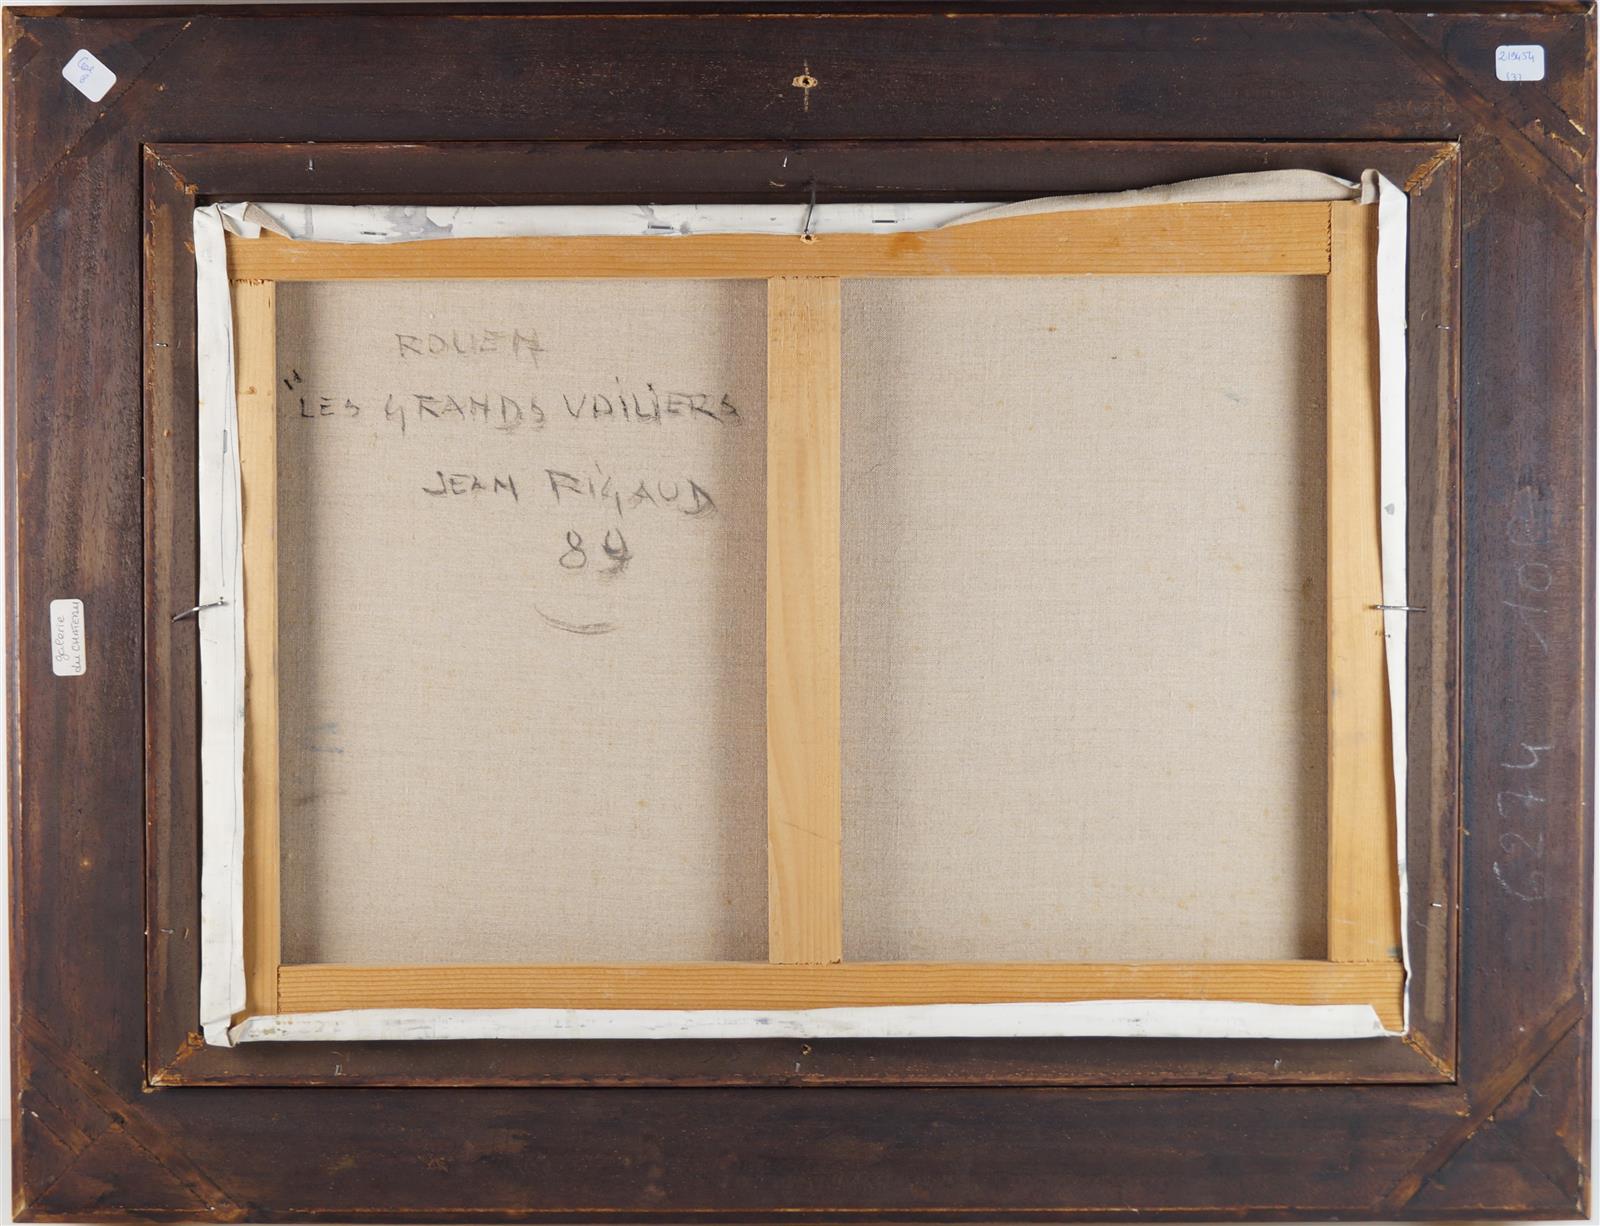 219454
(3)
ROUEN
"LES GRANDS VOILIERS
JEAN RIGAUD
89
galerie
du CHATEAU
6274